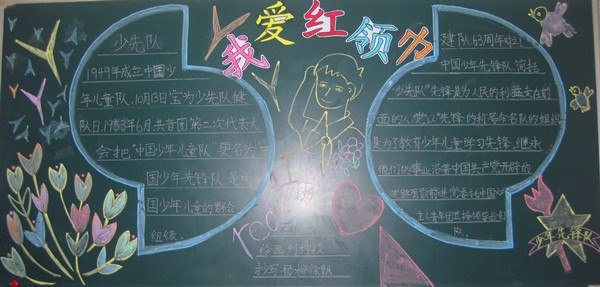 我爱红领巾
少先队
1949年成立中国少
年儿童队,10月13日宝为少先队健
队日.1953年6月,共青团第二次代表大
会把"中国少年儿童队"更名为"中
国少年先锋队是中
国少年儿童的群众
组级
建队63周年啦!
中国少年先锋队简括
"少先队"先锋是为人民的利益走在前
面的人,党以"先锋的称号命名队的组织
是为了教育少年儿童学习先锋,继承
他们的事业沿着中国共产党开辟的
队.
少年先锋队
绘画
抄写 杨柳